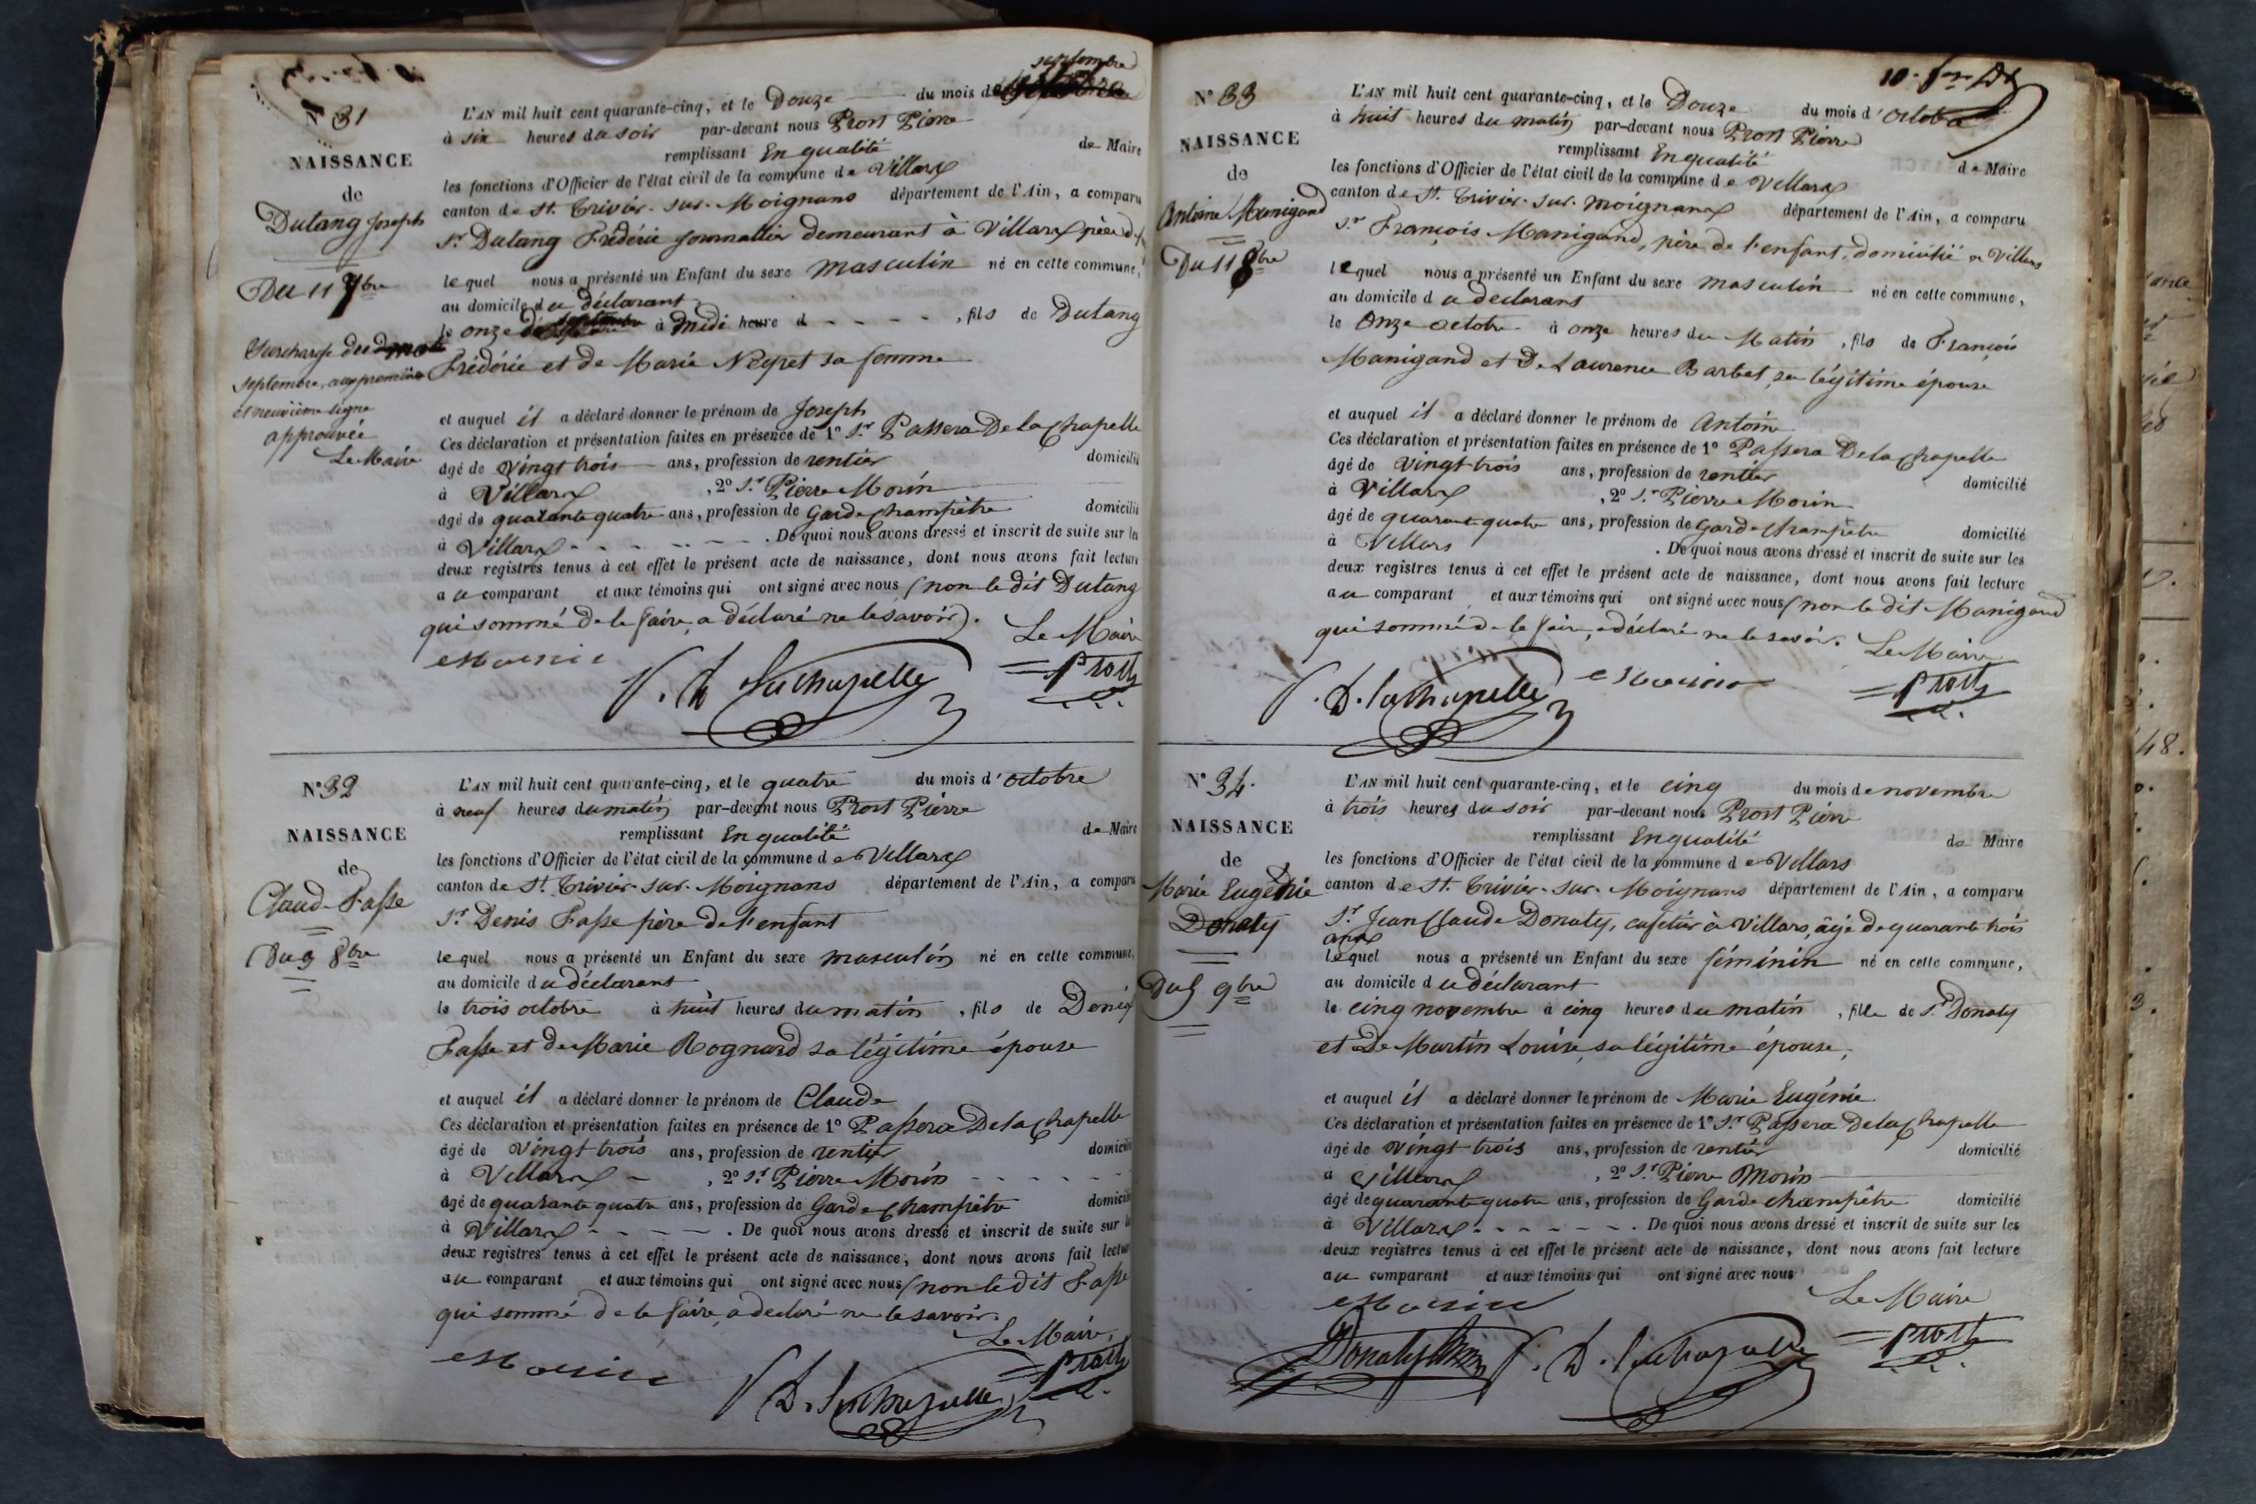 N° 31
NAISSANCE
de
Dutang Joseph
Du 11 7bre
Surcharge du mot
septembre, aux première
et neuvième ligne
approuvée
Le Maire
septembre
L'AN mil huit cent quarante-cinq, et le Douze du mois de
à six heures du soir par-devant nous Prost Pierre
remplissant En qualité de Maire
les fonctions d'Officier de l'état civil de la commune de Villars
canton de St. Trivier-sur-Moignans département de l'Ain, a comparu
Sr Dutang Frédéric journallier demeurant à Villars père de
lequel nous a présenté un Enfant du sexe masculin né en cette commune,
au domicile du déclarant
le onze de septembre à midi heure d - - - - , fils de Dutang
Frédéric et de Marie Neyret sa femme
et auquel il a déclaré donner le prénom de Joseph
Ces déclaration et présentation faites en présence de 1° Sr Passera De la Chapelle
âgé de vingt trois ans, profession de rentier domicilié
à Villars , 2° Sr Pierre Morin
âgé de quarante quatre ans, profession de Garde champêtre domicilié
à Villars - - - - - - . De quoi nous avons dressé et inscrit de suite sur les
deux registres tenus à cet effet le présent acte de naissance, dont nous avons fait lecture
au comparant et aux témoins qui ont signé avec nous (non le dit Dutang
qui sommé de le faire, a déclaré ne le savoir).
Le Maire
Morin
P. D. Lachapelle
Prost
N° 32
NAISSANCE
de
Claude Fasse
Du 3 8bre
L'AN mil huit cent quarante-cinq, et le quatre du mois d'octobre
à neuf heures du matin par-devant nous Prost Pierre
remplissant En qualité de Maire
les fonctions d'Officier de l'état civil de la commune de Villars
canton de St. Trivier-sur-Moignans département de l'Ain, a comparu
Sr Denis Fasse père de l'enfant
lequel nous a présenté un Enfant du sexe masculin né en cette commune,
au domicile du déclarant
le trois octobre à huit heures du matin , fils de Denis
Fasse et de Marie Rognard sa légitime épouse
et auquel il a déclaré donner le prénom de Claude
Ces déclaration et présentation faites en présence de 1° Passera De la Chapelle
âgé de vingt trois ans, profession de rentier domicilié
à Villars - , 2° Sr Pierre Morin - - - - -
âgé de quarante quatre ans, profession de Garde champêtre domicilié
à Villars - - - - . De quoi nous avons dressé et inscrit de suite sur les
deux registres tenus à cet effet le présent acte de naissance, dont nous avons fait lecture
au comparant et aux témoins qui ont signé avec nous (non le dit Fasse
qui sommé de le faire, a déclaré ne le savoir.
Le Maire,
Morin
P. D. Lachapelle
Prost
N° 33
NAISSANCE
de
Antoine Manigand
Du 11 8bre
L'AN mil huit cent quarante-cinq, et le Douze du mois d'octobre
à huit heures du matin par-devant nous Prost Pierre
remplissant En qualité de Maire
les fonctions d'Officier de l'état civil de la commune de Villars
canton de St. Trivier-sur-moignans département de l'Ain, a comparu
Sr François Manigand, père de l'enfant, domicilié à Villars
lequel nous a présenté un Enfant du sexe masculin né en cette commune,
au domicile du déclarant
le Onze octobre à onze heures du Matin , fils de François
Manigand et De Laurence Barbet, sa légitime épouse
et auquel il a déclaré donner le prénom de Antoine
Ces déclaration et présentation faites en présence de 1° Passera De la Chapelle
âgé de vingt trois ans, profession de rentier domicilié
à Villars , 2° Sr Pierre Morin
âgé de quarante quatre ans, profession de Garde champêtre domicilié
à Villars . De quoi nous avons dressé et inscrit de suite sur les
deux registres tenus à cet effet le présent acte de naissance, dont nous avons fait lecture
au comparant et aux témoins qui ont signé avec nous (non le dit Manigand
qui sommé de le faire, a déclaré ne le savoir.
Le Maire
P. D. Lachapelle
Morin
Prost
N° 34.
NAISSANCE
de
Marie Eugénie
Donaty
Du 5 9bre
L'AN mil huit cent quarante-cinq, et le cinq du mois de novembre
à trois heures du soir par-devant nous Prost Pierre
remplissant En qualité de Maire
les fonctions d'Officier de l'état civil de la commune de Villars
canton de St. Trivier-sur-Moignans département de l'Ain, a comparu
Sr Jean Claude Donaty, cafetier à Villars, âgé de quarante trois
ans
lequel nous a présenté un Enfant du sexe féminin né en cette commune,
au domicile du déclarant
le cinq novembre à cinq heures du matin , fille de Sr Donaty
et De Martin Louise, sa légitime épouse,
et auquel il a déclaré donner le prénom de Marie Eugénie
Ces déclaration et présentation faites en présence de 1° Sr Passera De la Chapelle
âgé de vingt trois ans, profession de rentier domicilié
à Villars , 2° Sr Pierre Morin
âgé de quarante quatre ans, profession de Garde champêtre domicilié
à Villars - - - - - - . De quoi nous avons dressé et inscrit de suite sur les
deux registres tenus à cet effet le présent acte de naissance, dont nous avons fait lecture
au comparant et aux témoins qui ont signé avec nous
Le Maire
Morin
Donaty
P. D. Lachapelle
Prost